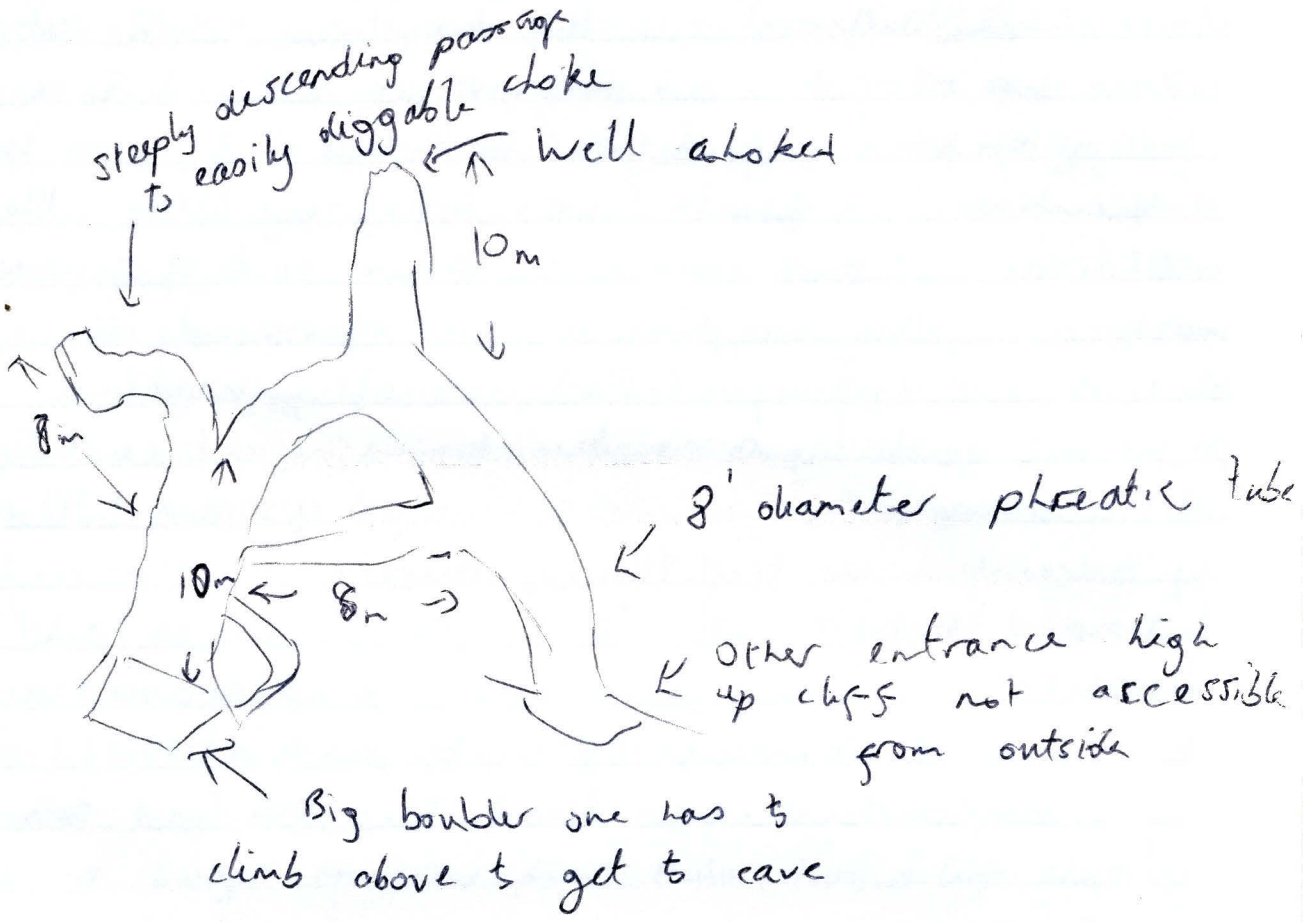 steeply descending passage
to easily diggable choke
Well choked
10m
8m
10m
8m
8' diameter phreatic tube
Other entrance high
up cliff not accessible
from outside
Big boulder one has to
climb above to get to cave